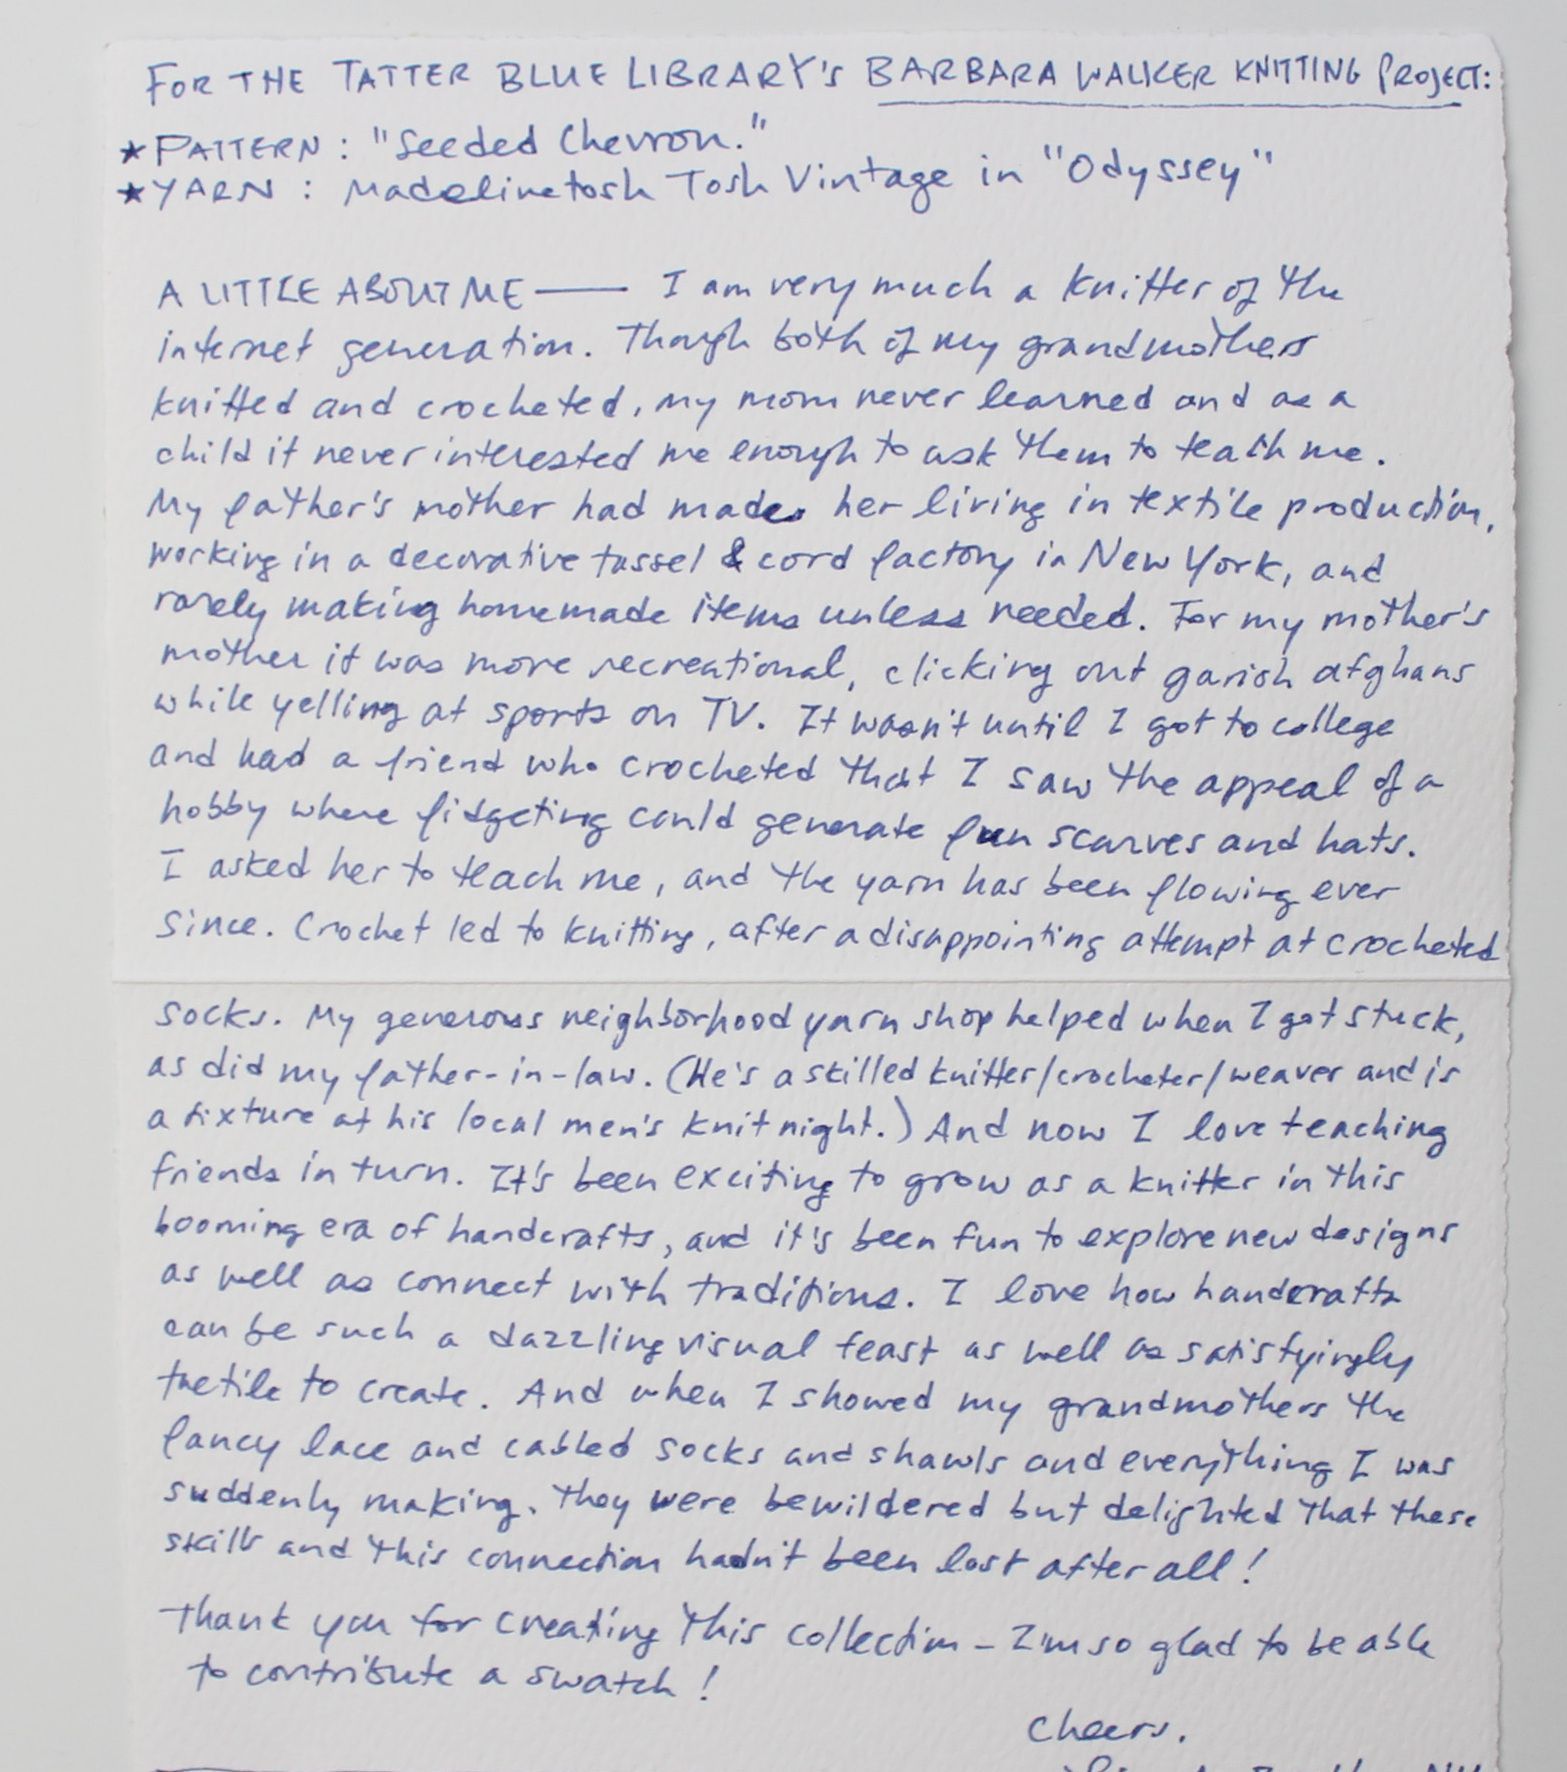 FOR THE TATTER BLUE LIBRARY'S BARBARA WALKER KNITTING PROJECT:
★ PATTERN : "Seeded Chevron."
★ YARN : Madelinetosh Tosh Vintage in "Odyssey"
A LITTLE ABOUT ME — I am very much a knitter of the
internet generation. Though both of my grandmothers
knitted and crocheted, my mom never learned and as a
child it never interested me enough to ask them to teach me.
My father's mother had made her living in textile production,
working in a decorative tassel & cord factory in New York, and
rarely making homemade items unless needed. For my mother's
mother it was more recreational, clicking out garish afghans
while yelling at sports on TV. It wasn't until I got to college
and had a friend who crocheted that I saw the appeal of a
hobby where fidgeting could generate fun scarves and hats.
I asked her to teach me, and the yarn has been flowing ever
since. Crochet led to knitting, after a disappointing attempt at crocheted
socks. My generous neighborhood yarn shop helped when I got stuck,
as did my father-in-law. (He's a skilled knitter/crocheter/weaver and is
a fixture at his local men's knit night.) And now I love teaching
friends in turn. It's been exciting to grow as a knitter in this
booming era of handcrafts, and it's been fun to explore new designs
as well as connect with traditions. I love how handcrafts
can be such a dazzling visual feast as well as satisfyingly
tactile to create. And when I showed my grandmothers the
fancy lace and cabled socks and shawls and everything I was
suddenly making, they were bewildered but delighted that these
skills and this connection hadn't been lost after all!
Thank you for creating this collection – I'm so glad to be able
to contribute a swatch!
Cheers,